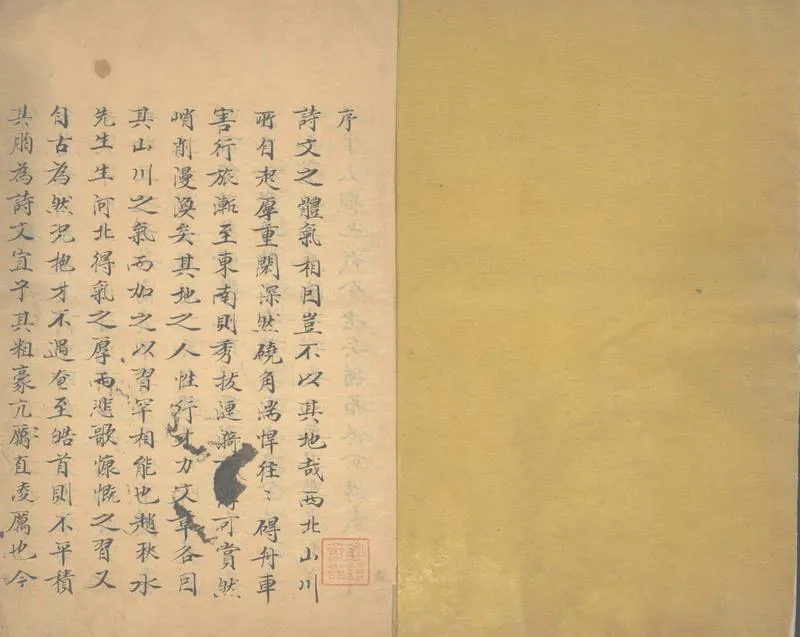 序
詩文之體氣相因豈不以其地哉西北山川
所自起厚重閎深然磽角湍悍往〻碍舟車
害行旅漸至東南則秀拔漣漪可賞然
峭削漫渙矣其地之人性行才力文章各因
其山川之氣而加之以習罕相能也趙秋水
先生生河北得氣之厚而悲歌慷慨之習又
自古為然況抱才不遇奄至皓首則不平積
其胷為詩文宜乎其粗豪亢厲直凌厲也今